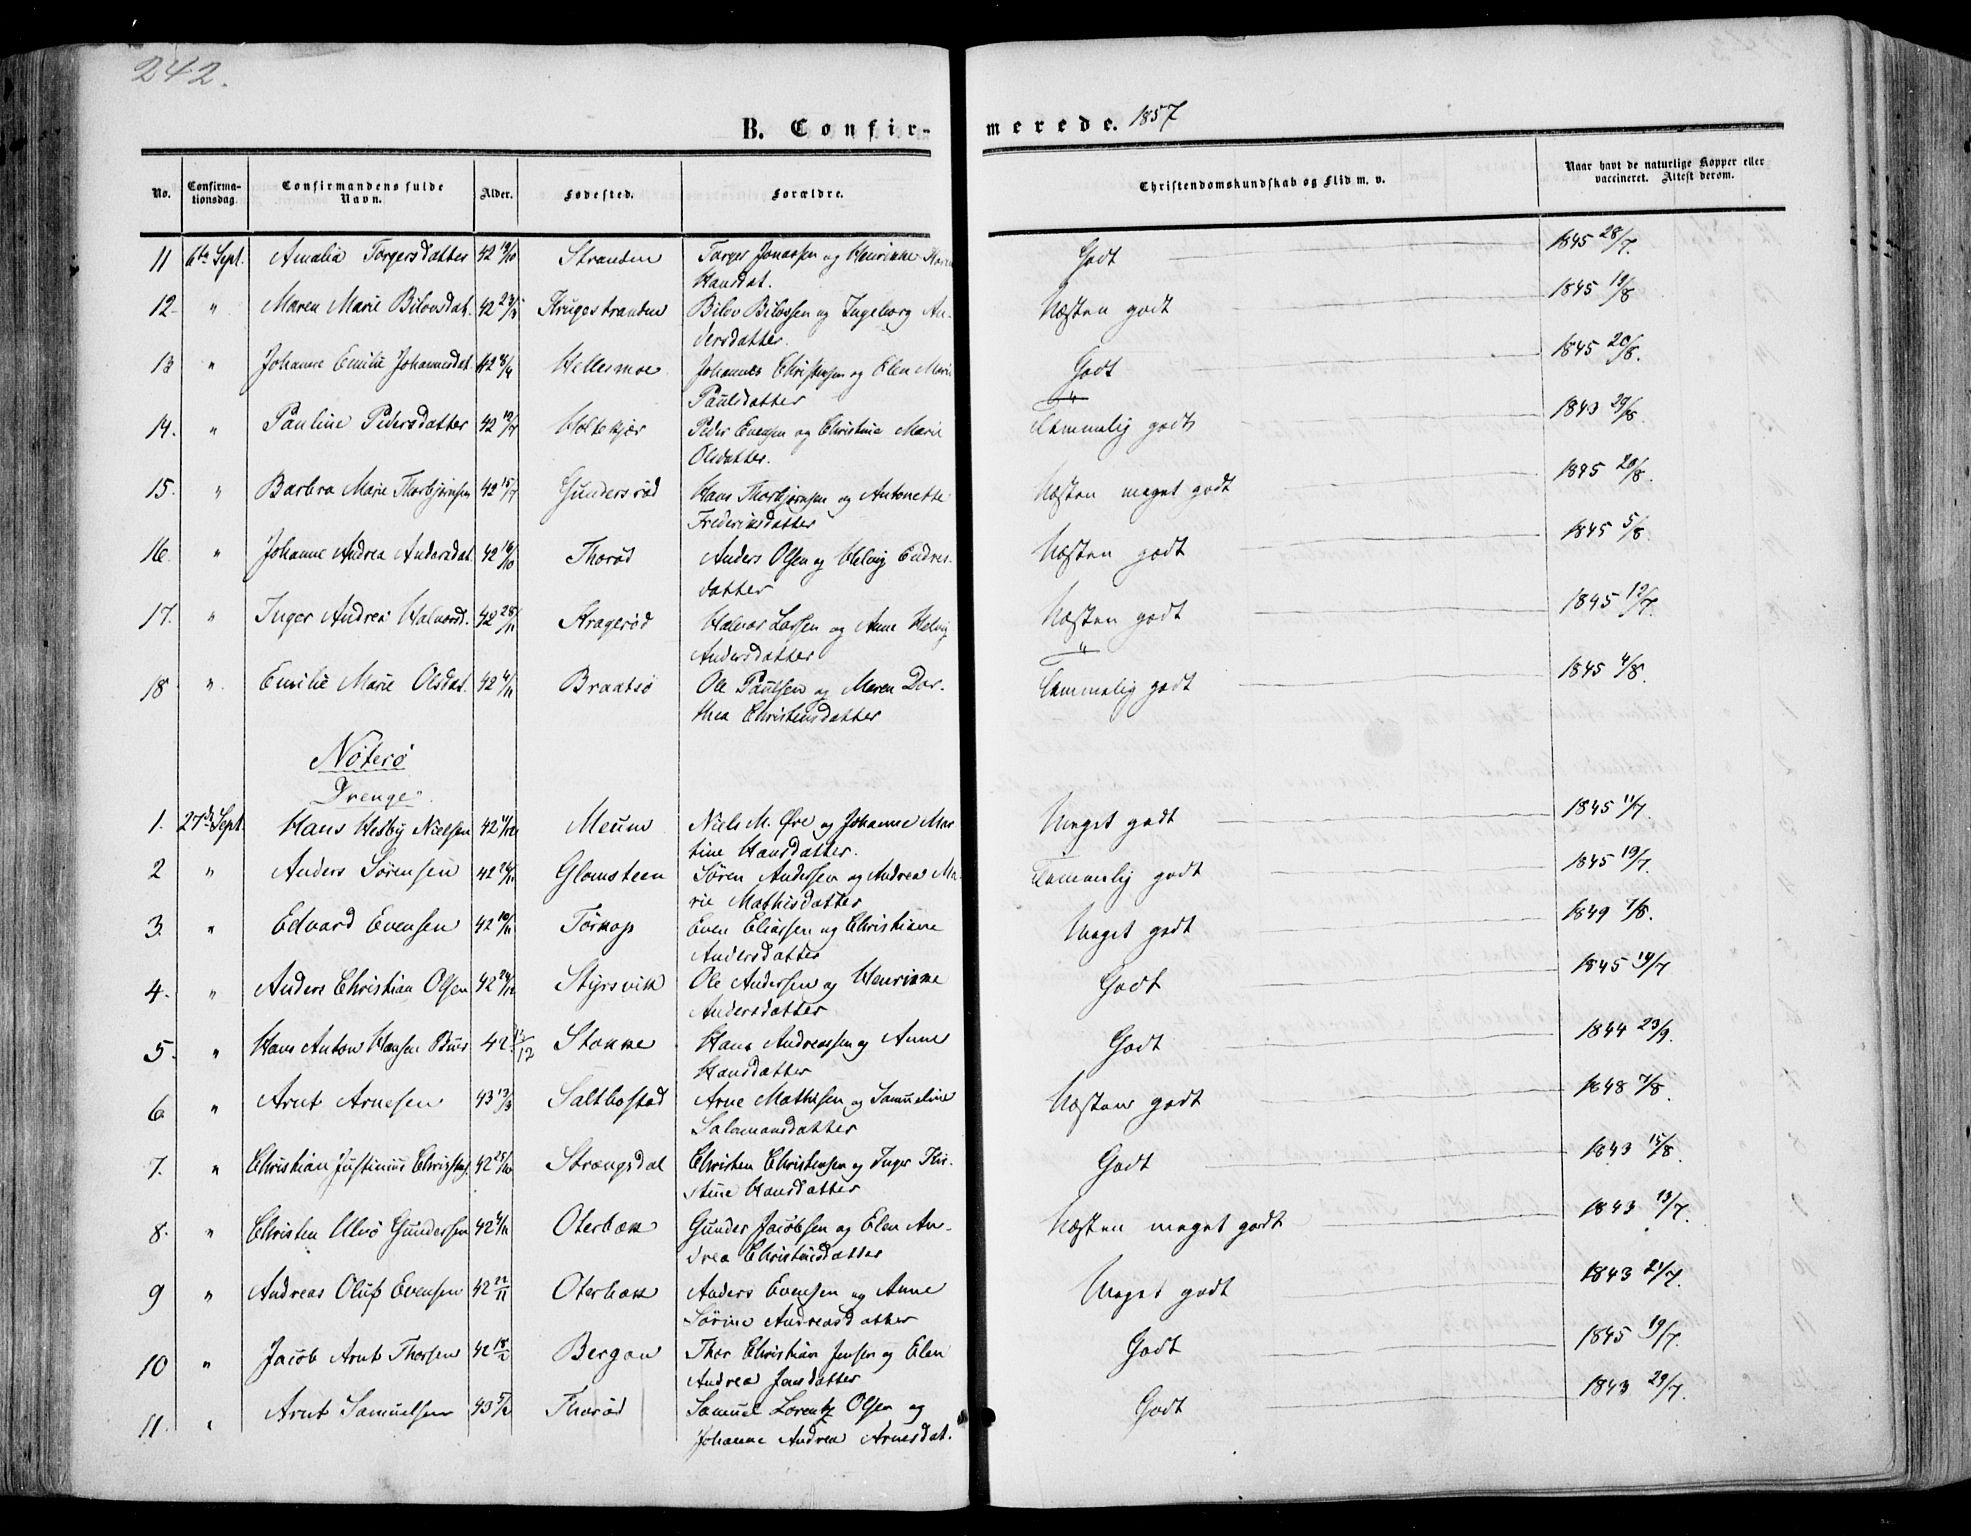 242.
B. Confirmerede. 1857
No. Confirmationsdag. Confirmandens fulde Navn. Alder. Fødested. Forældre. Christendomskundskab og Flid m. v. Naar havt de naturlige Kopper eller vaccineret. Attest derom.
11 6te Sept. Amalia Torgersdatter 42 19/10 Stranden Torger Jonassen og Henrikke Karen Hansdat. Godt 1845 28/7.
12 " Maren Marie Bilovsdat. 42 Krugestranden Bilov Bilovsen og Ingeborg Andersdatter. Næsten godt 1845 13/8
13 " Johanne Emilie Johannesdat. 42 8/9 Hellesmoe Johannes Christensen og Elen Marie Paulsdatter Godt 1845 20/8.
14. " Pauline Pedersdatter 42 Holtekjær Peder Evensen og Christine Marie Olsdatter. Temmelig godt 1843 29/8.
15. " Barbra Marie Thorbjørnsen 42 15/7 Gundersrød Hans Thorbjørnsen og Antonette Frederiksdatter Næsten meget godt 1845 20/8.
16. " Johanne Andrea Andersdat. 42 16/10 Thorød Anders Olsen og Helvig Endresdatter Næsten godt 1845 5/8.
17. " Inger Andrea Halvorsd. 42 28/11 Kragerød Halvor Larsen og Anne Helvig Andersdatter Næsten godt 1845 12/7.
18 " Emilie Marie Olsdat. 42 4/11 Braatsø Ole Paulsen og Maren Dorthea Christensdatter Temmelig godt 1845 4/8.
Nøterø
Drenge.
1. 27de Sept. Hans Hesby Nielsen 42 Meum Niels M. Øre og Johanne Martine Hansdatter. Meget godt 1845 11/7.
2 " Anders Sørensen 42 Glomsteen Søren Andersen og Andrea Marie Mathisdatter Temmelig godt 1845 19/7.
3. " Edvard Evensen 42 10/11 Torkop Even Eliassen og Christiane Andersdatter Meget godt 1849 7/8.
4. " Anders Christian Olsen 42 24/12 Styrsvik Ole Andersen og Henrikke Andersdatter Godt 1845 19/7
5. " Hans Anton Hansen 42 Stokke Hans Andreassen og Anne Hansdatter Godt 1844 23/9.
6. " Arnt Arnesen 43 13/3 Saltbostad Arne Mathisen og Samueline Salomonsdatter Næsten godt 1848 7/8.
7. " Christian Justinius Christens. 42 25/10 Strengsdal Christen Christensen og Inger Kirstine Hansdatter Godt 1843 15/8.
8. " Christen Ulvø Gundersen 42 4/11 Oterbæk Gunder Jacobsen og Elen Andrea Christensdatter Næsten meget godt 1843 13/7.
9 " Andreas Oluf Evensen 42 22/11 Oterbæk Anders Evensen og Anne Sørine Andreasdatter Meget godt 1843 21/7.
10 " Jacob Arnt Thorsen 42 18/12 Bergan Thor Christian Jensen og Elen Andrea Jensdatter Godt 1845 19/7.
11. " Arnt Samuelsen 43 5/2 Thorød Samuel Lorentz Olsen og Johanne Andrea Arnesdat. Godt 1843 29/7.